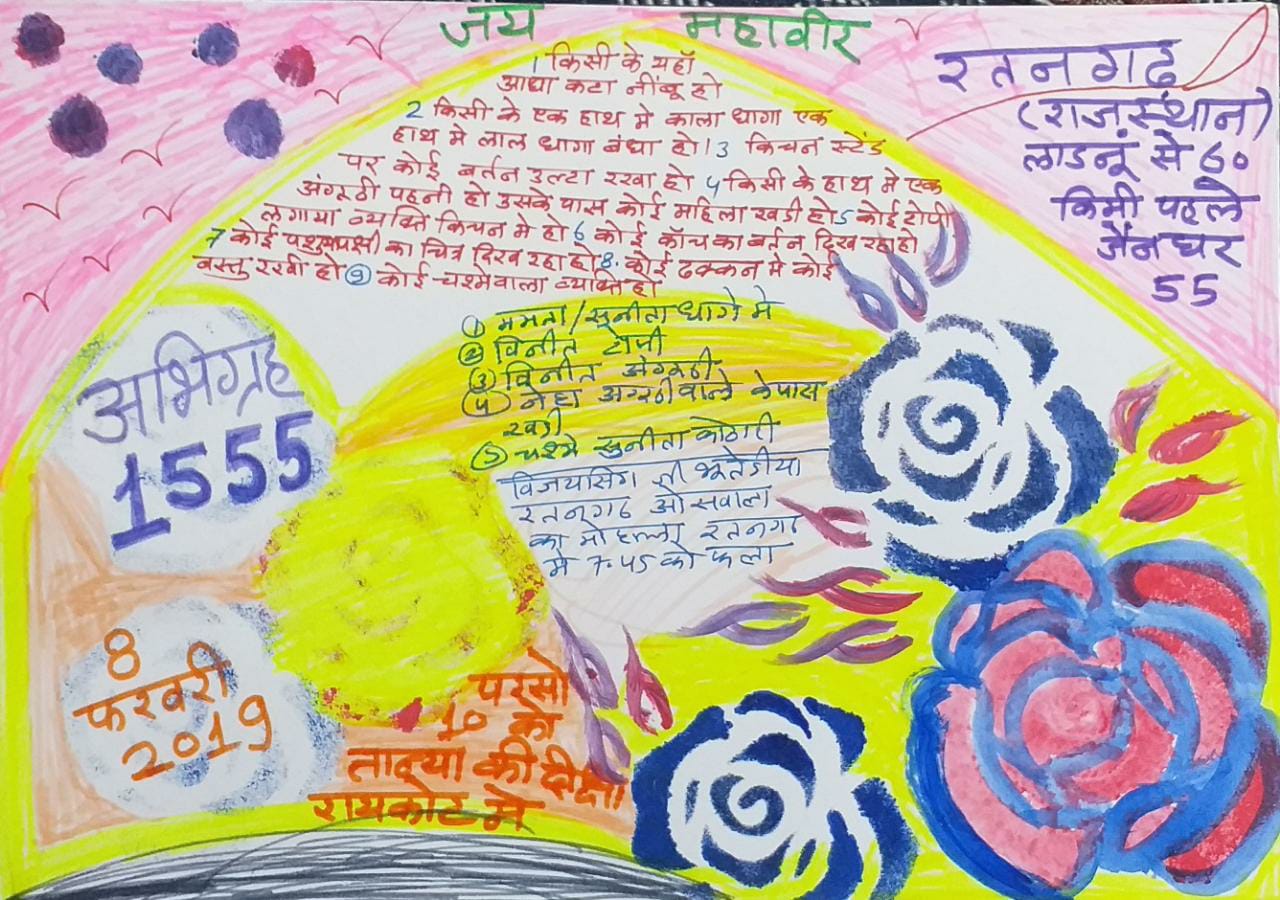 जय महावीर
1 किसी के यहाँ
आधा कटा नींबू हो
2 किसी के एक हाथ मे काला धागा एक
हाथ मे लाल धागा बंधा हो। 3 किचन स्टेंड
पर कोई बर्तन उल्टा रखा हो 4 किसी के हाथ मे एक
अंगूठी पहनी हो उसके पास कोई महिला खडी हो 5 कोई टोपी
लगाया व्यक्ति किचन मे हो 6 कोई काँच का बर्तन दिख रहा हो
7 कोई पशु पक्षी का चित्र दिख रहा हो 8. कोई ढक्कन मे कोई
वस्तु रखी हो 9 कोई चश्मेवाला व्यक्ति हो
रतनगढ
(राजस्थान)
लाडनूं से 60
किमी पहले
जैन घर
55
1 ममता/सुनीता धागे मे
2 विनीत टोपी
3 विनीत अंगूठी
4 नेहा अंगूठीवाले के पास
खडी
5 चश्मे सुनीता कोठारी
विजयसिंग जी भूतेडीया
रतनगढ ओसवाला
का मोहल्ला रतनगढ
मे 7.45 को फला
अभिग्रह
1555
8
फरवरी
2019
परसो
10 को
की दीक्षा
रायकोट मे